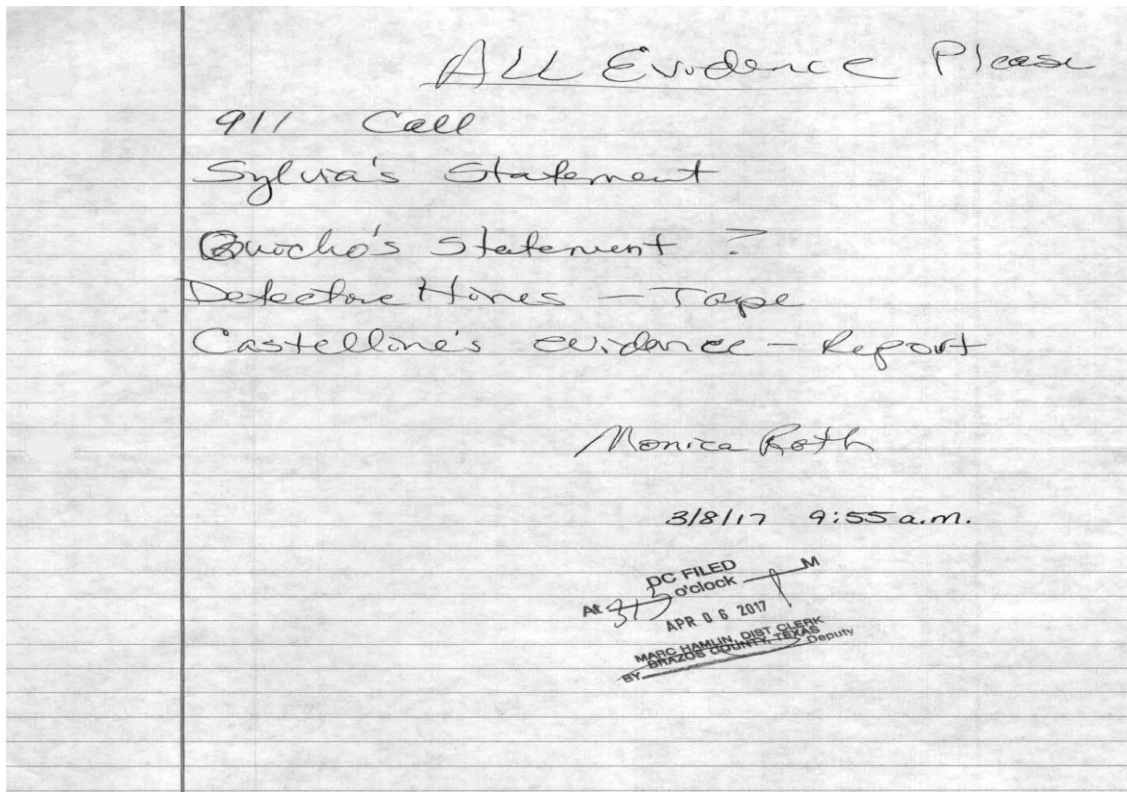 ALL Evidence Please
911 Call
Sylvia's Statement
Quicho's Statement ?
Detective Hines - Tape
Castelline's evidence - Report
Monica Roth
3/8/17 9:55 a.m.
DC FILED
At 3:15 o'clock P M
APR 06 2017
MARC HAMLIN, DIST CLERK
BRAZOS COUNTY, TEXAS
BY Deputy